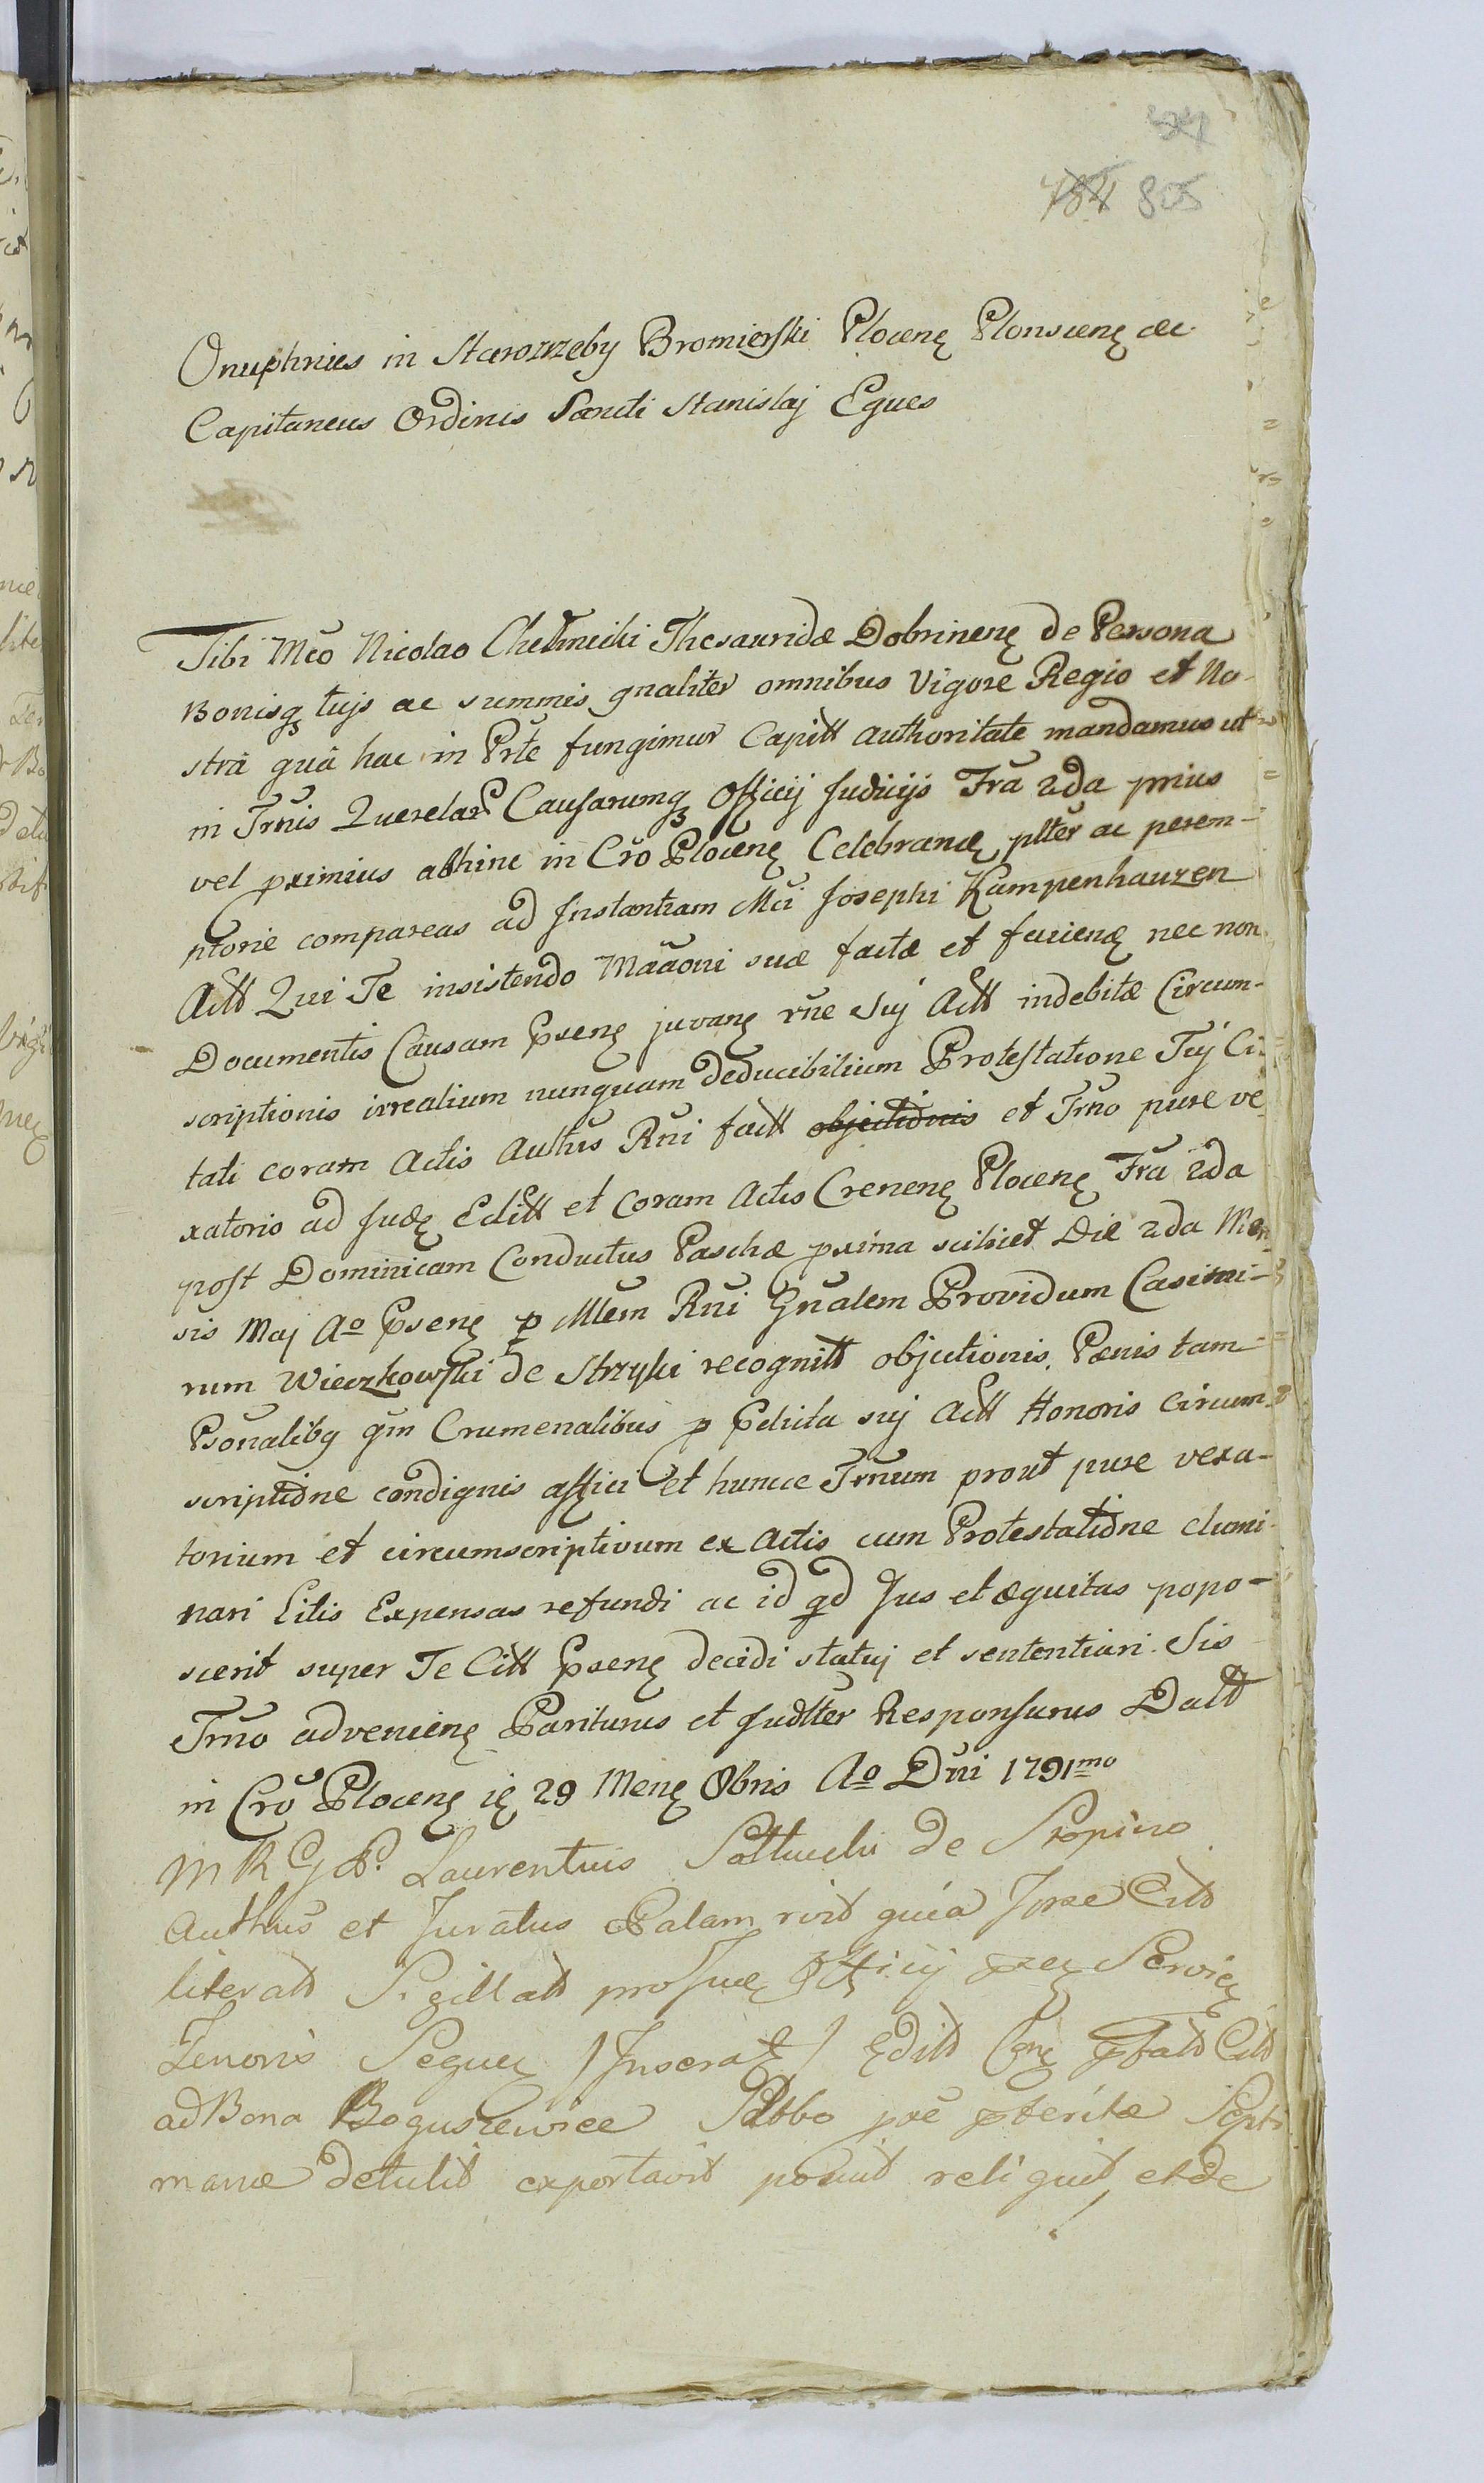 805
Onuphrius in Starorzeby Bromierski Plocenę Plonscenę &c
Capitaneus Ordinis Sancti Stanislaj Eques
Tibi Mco Nicolao Chełmicki Thesauridæ Dobrinenę de Persona
Bonisqȝ tujs ac summis gnaliter omnibus Vigore Regio et No-
strâ quâ hac in Prte fungimur Capitt authoritate mandamus ut
in Trnis Querelar Causarumqȝ Officij Judicijs Fra 2da prius
vel pximius abhinc in Cro Plocenę Celebranę pltter ac perem-
ptorie compareas ad Instantiam Mci Josephi Kampenhauzen
Actt Qui Te insistendo Maaoni suæ factæ et facienę nec non
Documentis Causam Psenę juvanę rne Suj Actt indebitæ Circum-
scriptionis irrealium nunquam deducibilium Protestatione Tuj Ci-
tati coram Actis Authus Rni factt objectionis et Trno pure ve
xatorio ad Judę Editt et coram Actis Crenenę Plocenę Fra 2da
post Dominicam Conductus Paschæ pxima scilicet Die 2da Men
sis Maj Ao Psenę p Mlem Rni Gnalem Providum Casimi-
rum Wieczkowski de Strzyki recognitt objectionis, Pænis tam
Psonalibq qm Crumenalibus p Pelicta suj Actt Honoris Circum-
scriptione condignis affici et huncce Trnum prout pure vexa-
torium et circumscriptivum ex Actis cum Protestatione elimi-
nari Litis Expensas refundi ac id qd Jus et æquitas popo-
scerit super Te Citt Psenę decidi statuj et sententiari. Sis
Trno advenienę Pariturus et Judltter Responsurus Datt
in Cro Plocenę ię 29 Menę Obris Ao Dni 1791mo
M R G P. Laurentius Soltucki de Skopino
Authus et Juratus Palam rvit quia Ipse Citt
literatt Sigillatt pro Juę Officij pzę Servię
Tenoris Sequę /Inseratę/ Editt Conę pfatt Citt
ad Bona Boguszewice Sabbo pre pteritæ Septi
manæ detulit exportavit posuit reliquit et de